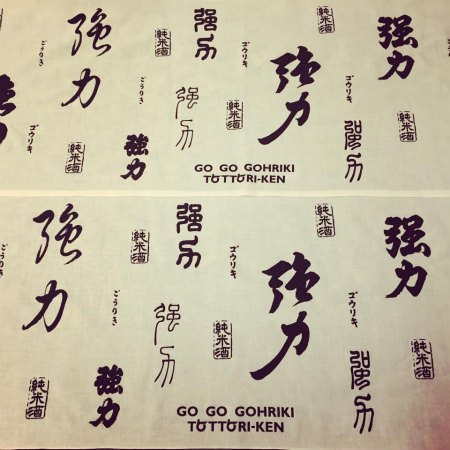 強力
純米酒
强力
ゴウリキ
強力
ゴウリキ
强力
ごうりき
ゴウリキ
純米酒
強力
强力
强力
純米酒
GO GO GOHRIKI
TOTTORI-KEN
ごうりき
強力
純米酒
强力
ゴウリキ
強力
純米酒
ゴウリキ
强力
ごうりき
純米酒
強力
强力
純米酒
强力
純米酒
GO GO GOHRIKI
TOTTORI-KEN